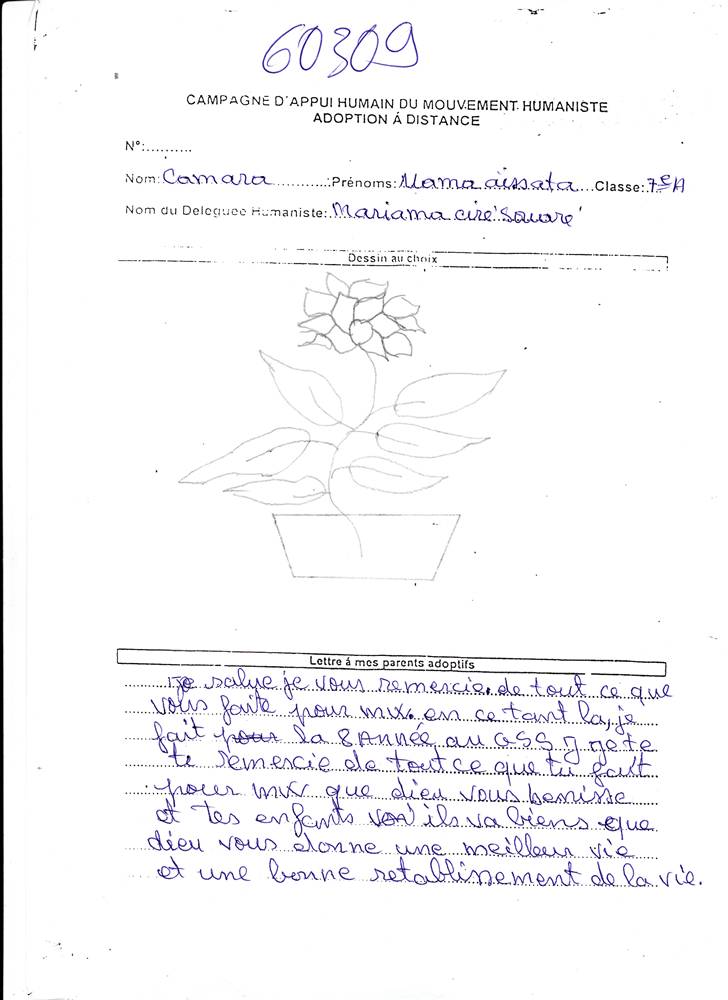 60309
CAMPAGNE D'APPUI HUMAIN DU MOUVEMENT HUMANISTE
ADOPTION Á DISTANCE
N°:..........
Nom: Camara ............:Prénoms: Mama aissata ...Classe: 7e A
Nom du Deleguee Humaniste: Mariama ciré Souaré
Dessin au choix
Lettre á mes parents adoptifs
Je salue je vous remercie de tout ce que
vous faite pour mux. en ce tant la, je
fait pour la 8 Année au GSS
te remercie de tout ce que tu fait
pour mux que dieu vous benisse
et tes enfants ils va biens que
dieu vous donne une meilleur vie
et une bonne retablissement de la vie.